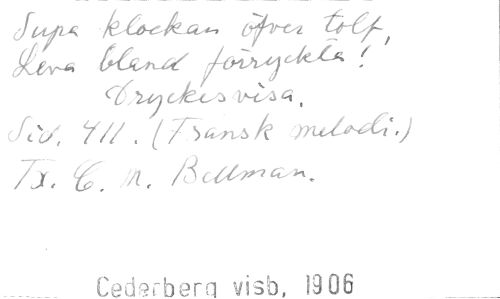 Supa klockan öfver tolf,
Leva bland förryckta!
Dryckesvisa.
Sid. 411. (Fransk melodi.)
Tx. C. M. Bellman.
Cederberg visb, 1906